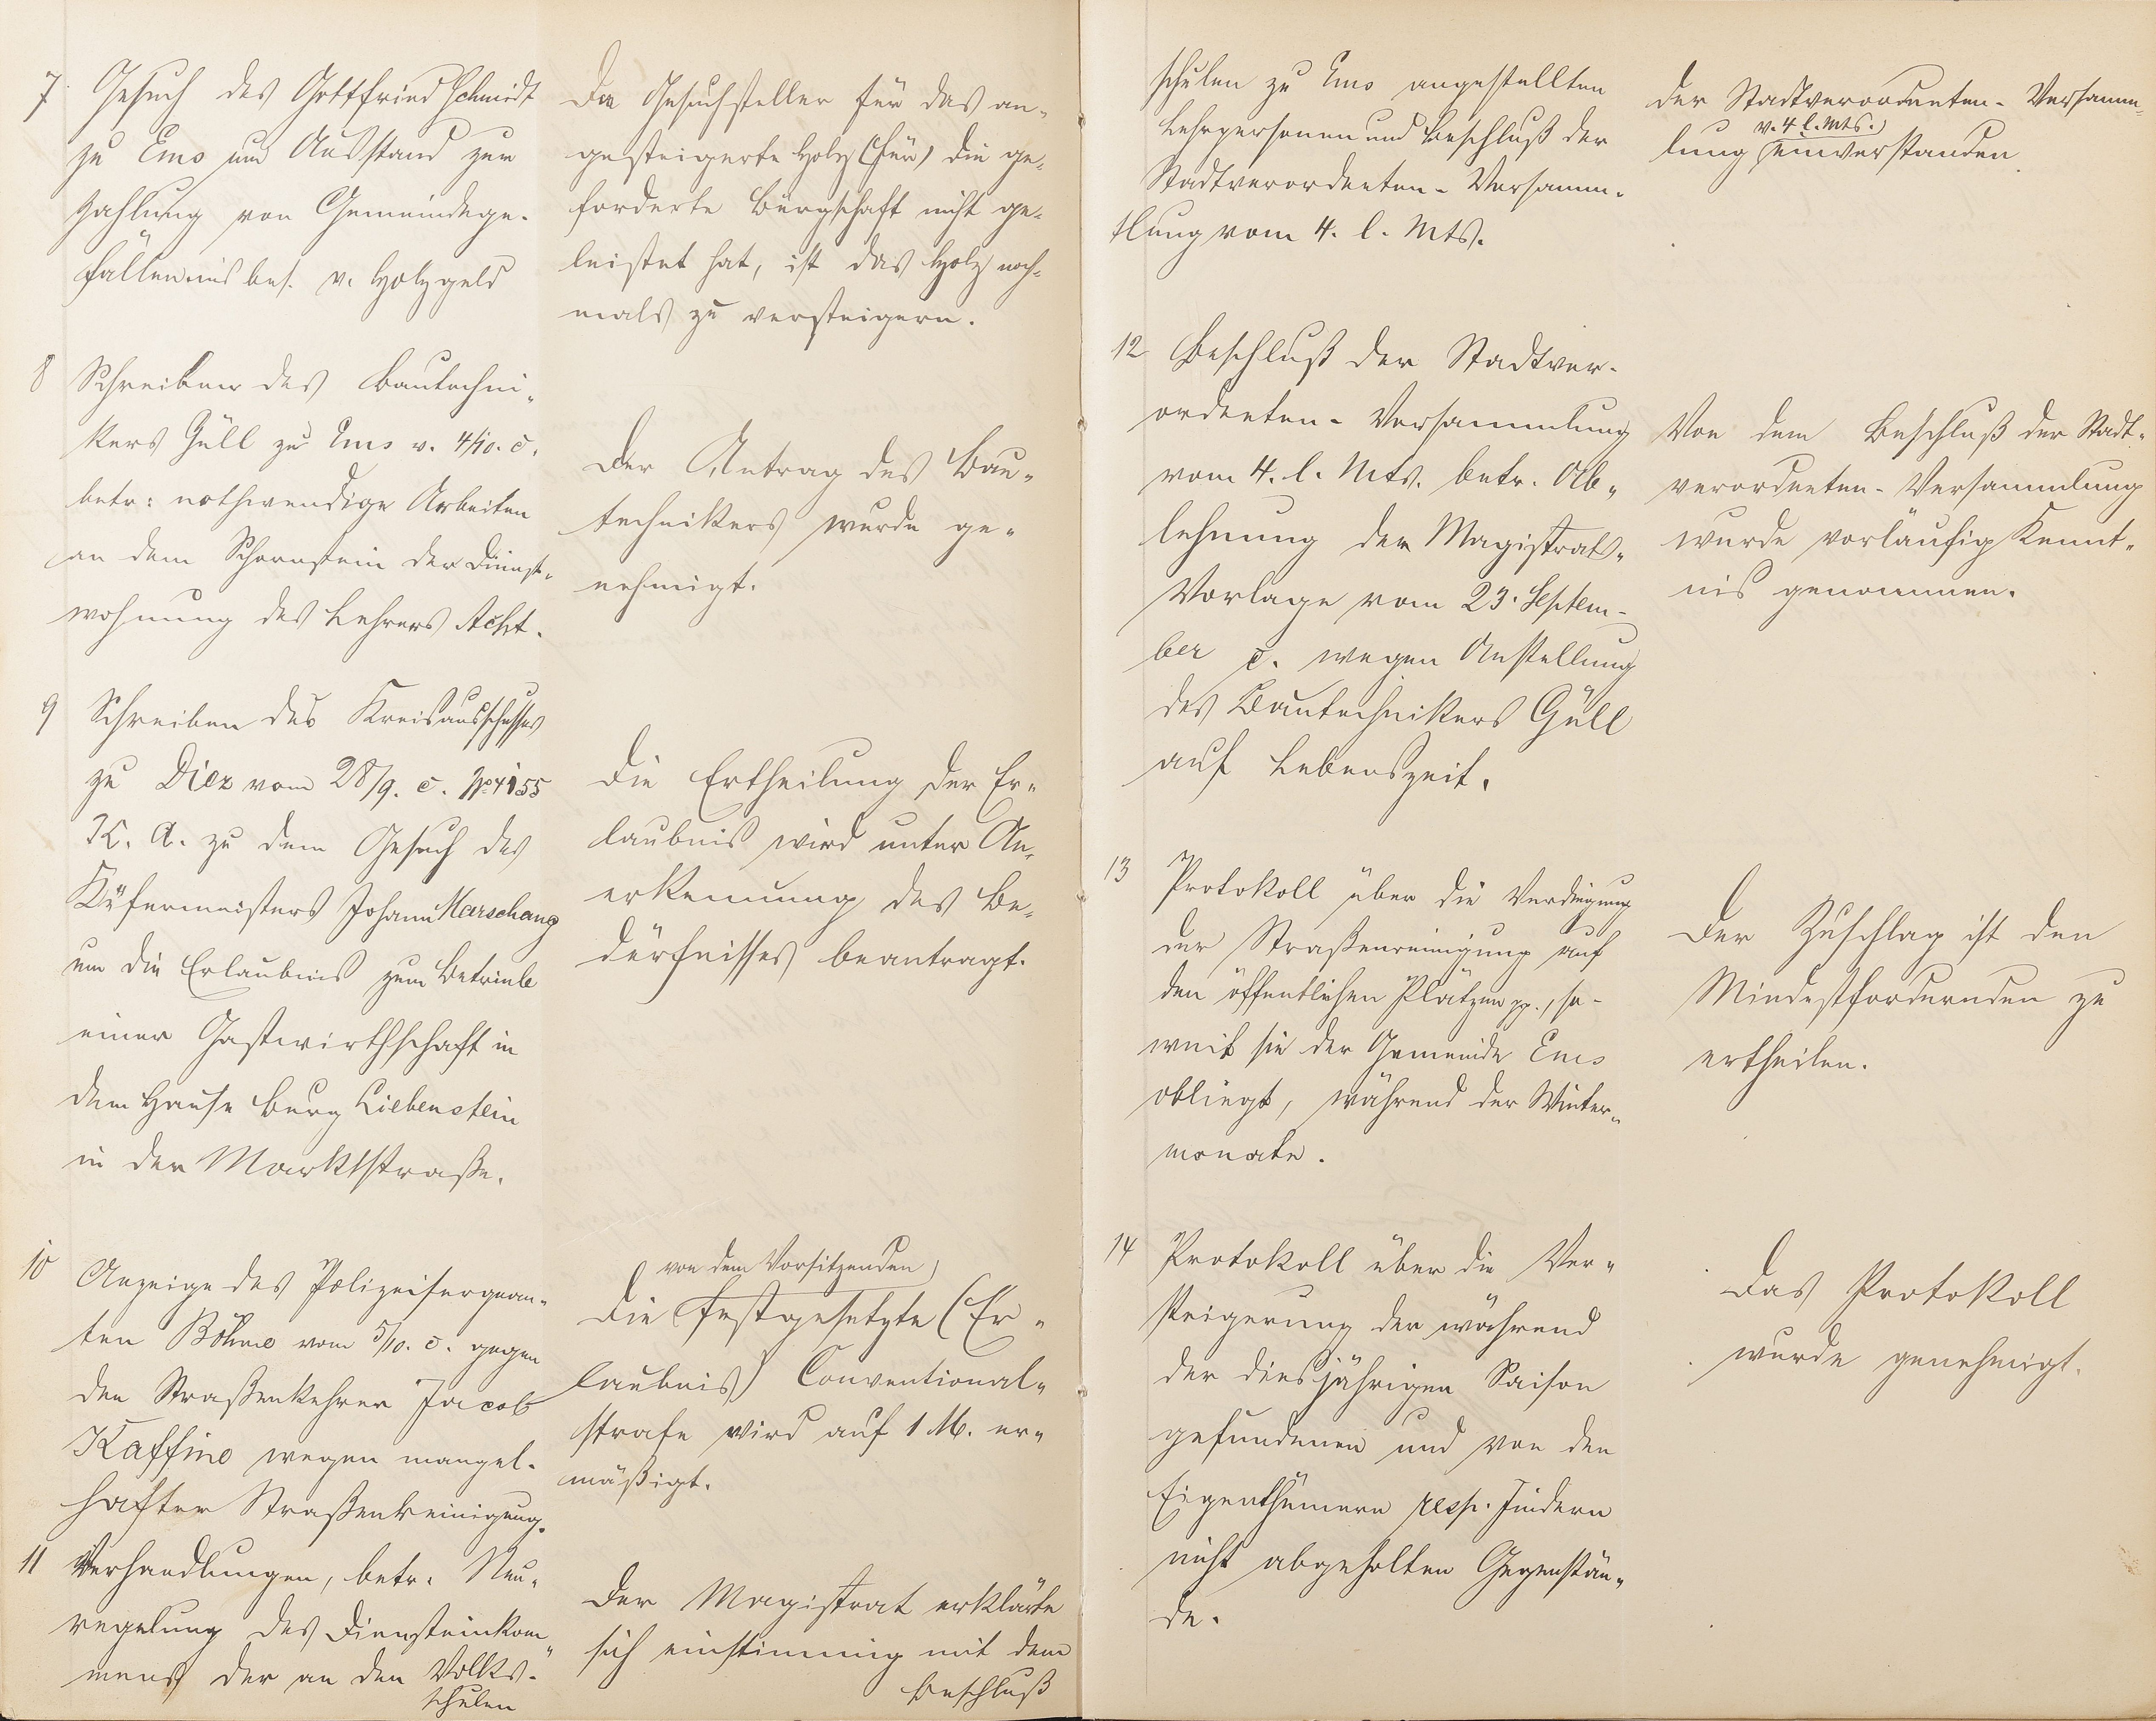 7 Gesuch des Gottfried Schmidt
zu Ems um Ausstand zur
Zahlung von Gemeindege-
fällen und bes. v. Holzgeld
Da Gesuchsteller für das an-
gesteigerte Holz (für) die ge-
forderte Bürgschaft nicht ge-
leistet hat, ist das Holz noch-
mals zu versteigern.
8 Schreiben des Bautechni-
kers Güll zu Ems v. 4/10. c.
betr: nothwendige Arbeiten
an dem Schornstein der Dienst-
wohnung des Lehrers Acht.
Der Antrag des Bau-
technikers wurde ge-
nehmigt.
9 Schreiben des Kreisausschusses
zu Diez vom 28/9. c. No 4155
K. A. zu dem Gesuch des
Küfermeisters Johann Marschang
um die Erlaubniß zum Betriebe
einer Gastwirthschaft in
dem Hause Burg Liebenstein
in der Marktstraße.
Die Ertheilung der Er-
laubniß wird unter An-
erkennung des Be-
dürfnisses beantragt.
10 Anzeige des Polizeisergean-
ten Böhme vom 5/10. c. gegen
den Straßenkehrer Jacob
Kaffine wegen mangel-
hafter Straßenreinigung.
von dem Vorsitzenden
Die festgesetzte (Er-
laubniß) Conventional-
strafe wird auf 1 M. er-
mäßigt.
11 Verhandlungen, betr. Neu-
regelung des Diensteinkom-
mens der an den Volks-
schulen
Der Magistrat erklärte
sich einstimmig mit dem
Beschluß
schulen zu Ems angestellten
Lehrpersonen und Beschluß der
Stadtverordneten-Versamm-
lung vom 4. l. Mts.
der Stadtverordneten-Versamm-
v. 4 l. Mts.
lung einverstanden
12 Beschluß der Stadtver-
ordneten-Versammlung
vom 4. l. Mts. betr. Ab-
lehnung der Magistrats-
Vorlage vom 23. Septem-
ber c. wegen Anstellung
des Bautechnikers Güll
auf Lebenszeit.
Von dem Beschluß der Stadt-
verordneten-Versammlung
wurde vorläufig Kennt-
niß genommen.
13 Protokoll über die Verdingung
der Straßenreinigung auf
den öffentlichen Plätzen pp., so-
weit sie der Gemeinde Ems
obliegt, während der Winter-
monate.
Der Zuschlag ist den
Mindestfordernden zu
ertheilen.
14 Protokoll über die Ver-
steigerung der während
der diesjährigen Saison
gefundenen und von den
Eigenthümern resp. Findern
nicht abgeholten Gegenstän-
de.
Das Protokoll
wurde genehmigt.